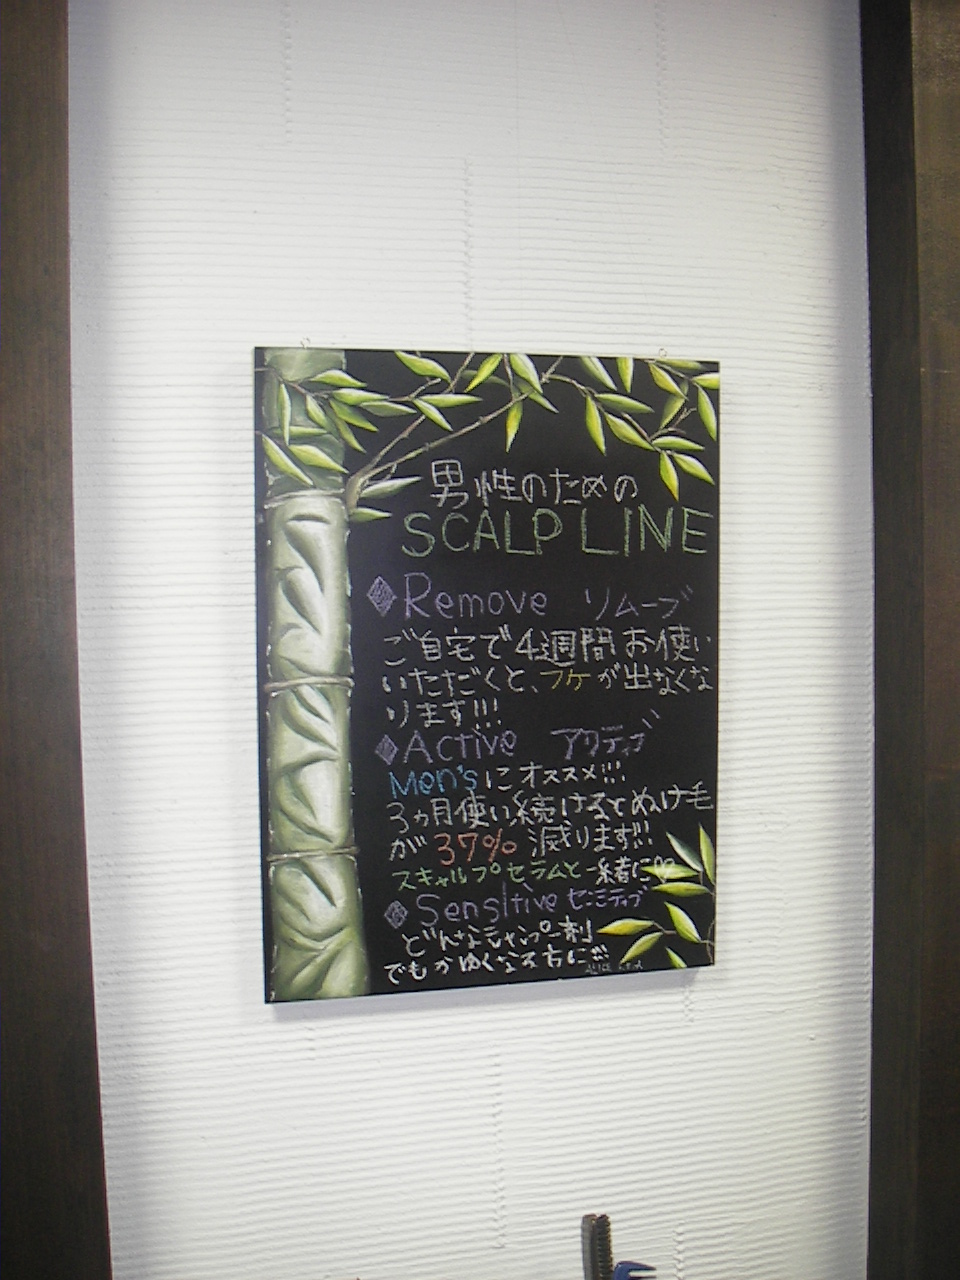 男性のための
SCALP LINE
◆Remove リムーブ
ご自宅で4週間お使い
いただくと、フケが出なくな
ります!!!
◆Active アクティブ
Men'sにオススメ!!!
3ヵ月使い続けるとぬけ毛
が37%減ります!!!
スキャルプセラムと一緒に♡
◆Sensitive センシティブ
どんなシャンプー剤
でもかゆくなる方に!!!